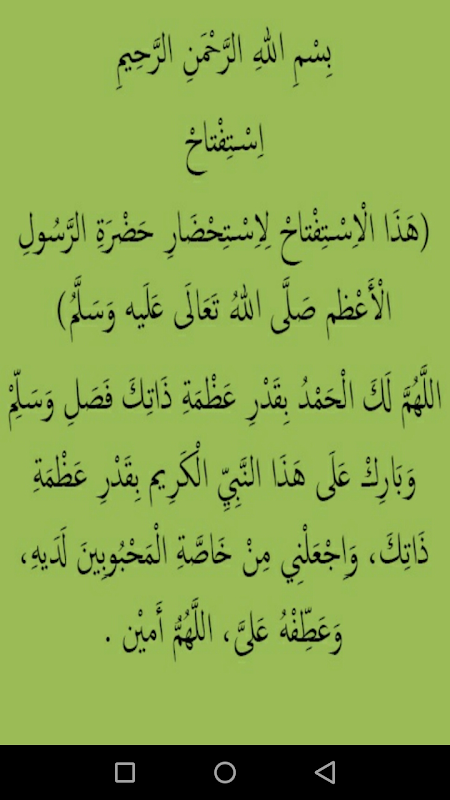 بِسْمِ اللهِ الرَّحْمَنِ الرَّحِيمِ
اِسْتِفْتاحْ
(هَذَا الْاِسْتِفْتاحْ لِاِسْتِحْضَارِ حَضْرَةِ الرَّسُولِ
الْأَعْظم صَلَّى اللهُ تَعَالَى عَلَيه وَسَلَّمُ)
اللَّهُمَّ لَكَ الْحَمْدُ بِقَدْرِ عَظْمَةِ ذَاتِكَ فَصَلِ وَسَلِّمْ
وَبَارِكْ عَلَى هَذَا النَّبِيِّ الْكَرِيم بِقَدْرِ عَظْمَةِ
ذَاتِكَ، وَاِجْعَلْنِي مِنْ خَاصَّةِ الْمَحْبُوبِينَ لَدَيهِ،
وَعَطِّفْهُ عَلىَّ، اللَّهُمُّ أَميْن .